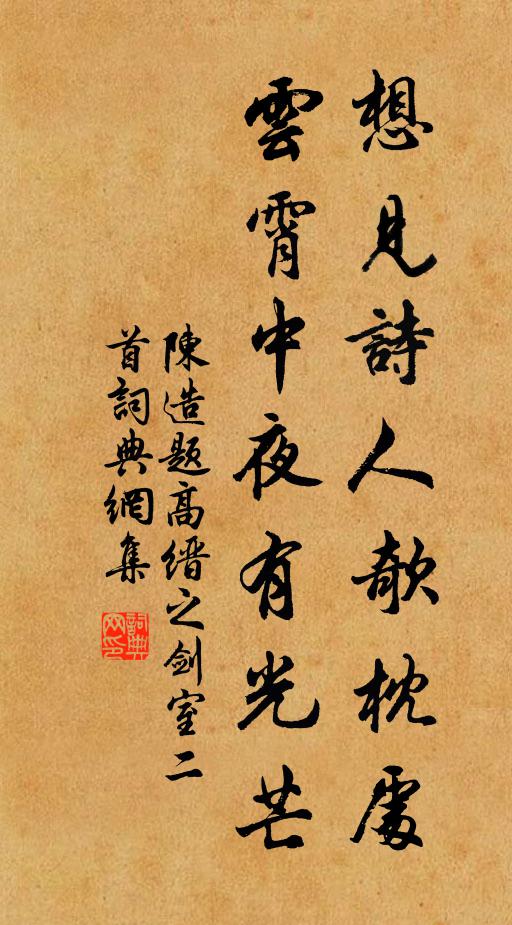 想見詩人欹枕處
雲霄中夜有光芒
陳造題高缙之劍室二
首詞典網集
詞典网印